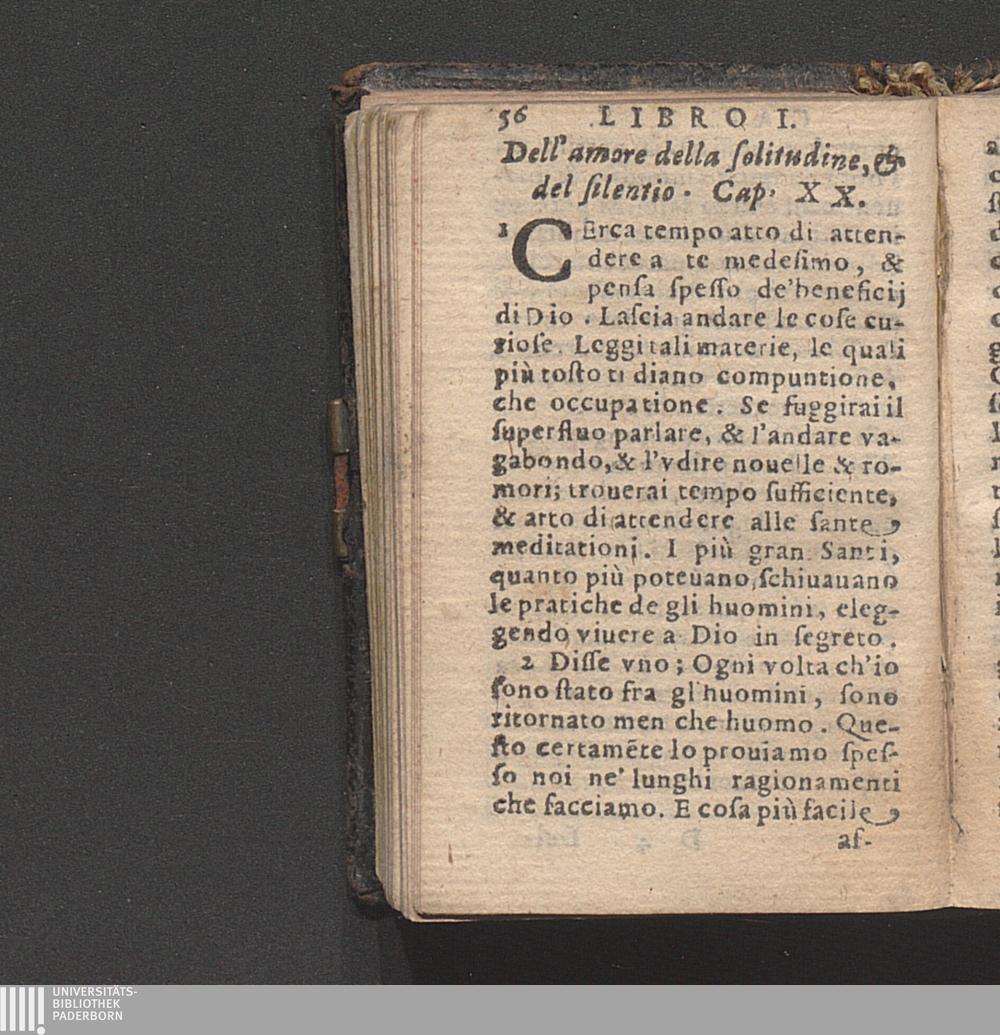 56 LIBRO I.
Dell'amore della ſolitudine, &
del ſilentio. Cap. XX.
1 CErca tempo atto di atten-
dere a te medeſimo, &
penſa ſpeſſo de'beneficij
di Dio. Laſcia andare le coſe cu-
rioſe. Leggi tali materie, le quali
più toſto ti diano compuntione,
che occupatione. Se fuggirai il
ſuperfluo parlare, & l'andare va-
gabondo, & l'vdire nouelle & ro-
mori; trouerai tempo ſufficiente,
& atto di attendere alle ſante
meditationi. I più gran Santi,
quanto più poteuano, ſchiuauano
le pratiche de gli huomini, eleg-
gendo viuere a Dio in ſegreto.
2 Diſſe vno; Ogni volta ch'io
ſono ſtato fra gl'huomini, ſono
ritornato men che huomo. Que-
ſto certamēte lo prouiamo ſpeſ-
ſo noi ne' lunghi ragionamenti
che facciamo. E coſa più facile
aſ-
UNIVERSITÄTS-
BIBLIOTHEK
PADERBORN